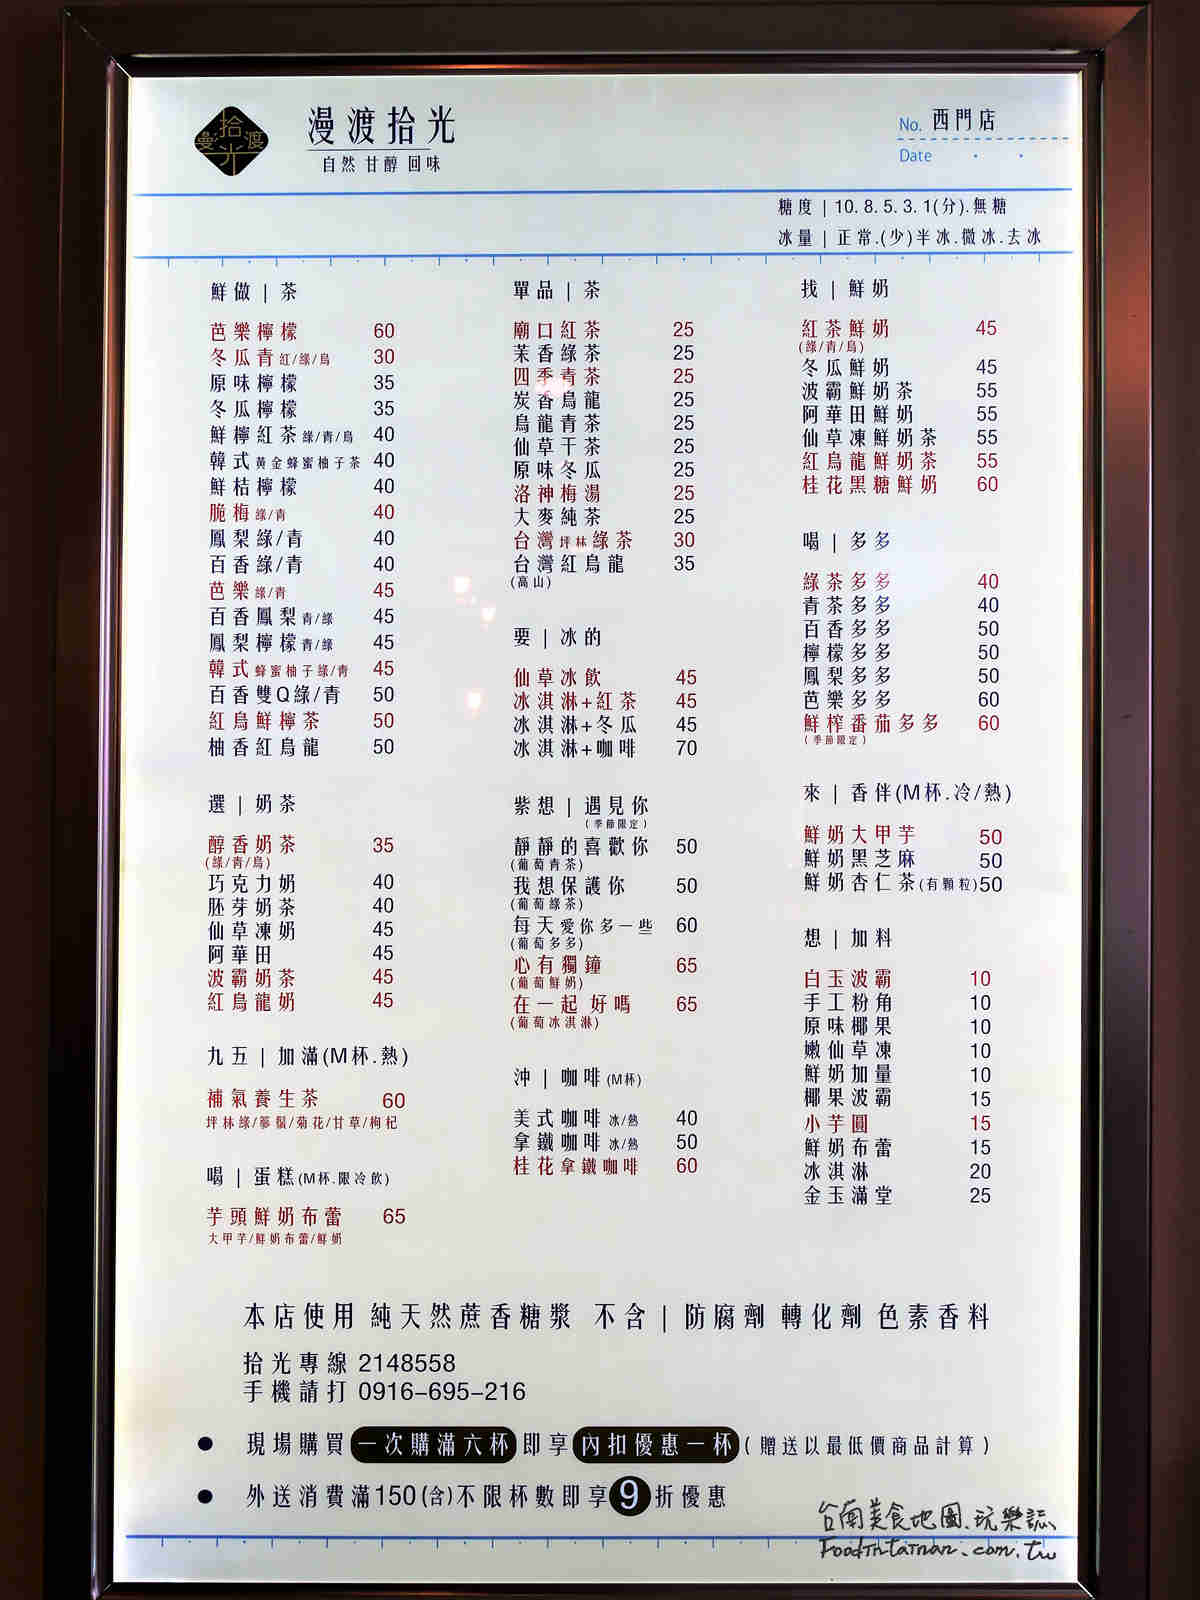 拾
漫 渡
光
漫渡拾光
自然 甘醇 回味
No. 西門店
Date
糖度 | 10.8.5.3.1(分).無糖
冰量 | 正常.(少)半冰.微冰.去冰
鮮做 | 茶
芭樂檸檬 60
冬瓜青紅/綠/烏 30
原味檸檬 35
冬瓜檸檬 35
鮮檸紅茶綠/青/烏 40
韓式黃金蜂蜜柚子茶 40
鮮桔檸檬 40
脆梅綠/青 40
鳳梨綠/青 40
百香綠/青 40
芭樂綠/青 45
百香鳳梨青/綠 45
鳳梨檸檬青/綠 45
韓式蜂蜜柚子綠/青 45
百香雙Q綠/青 50
紅烏鮮檸茶 50
柚香紅烏龍 50
選 | 奶茶
醇香奶茶 35
(綠/青/烏)
巧克力奶 40
胚芽奶茶 40
仙草凍奶 45
阿華田 45
波霸奶茶 45
紅烏龍奶 45
九五 | 加滿(M杯.熱)
補氣養生茶 60
坪林綠/蔘鬚/菊花/甘草/枸杞
喝 | 蛋糕(M杯.限冷飲)
芋頭鮮奶布蕾 65
大甲芋/鮮奶布蕾/鮮奶
單品 | 茶
廟口紅茶 25
茉香綠茶 25
四季青茶 25
炭香烏龍 25
烏龍青茶 25
仙草干茶 25
原味冬瓜 25
洛神梅湯 25
大麥純茶 25
台灣坪林綠茶 30
台灣紅烏龍 35
(高山)
要 | 冰的
仙草冰飲 45
冰淇淋+紅茶 45
冰淇淋+冬瓜 45
冰淇淋+咖啡 70
紫想 | 遇見你
(季節限定)
靜靜的喜歡你 50
(葡萄青茶)
我想保護你 50
(葡萄綠茶)
每天愛你多一些 60
(葡萄多多)
心有獨鐘 65
(葡萄鮮奶)
在一起 好嗎 65
(葡萄冰淇淋)
沖 | 咖啡(M杯)
美式咖啡冰/熱 40
拿鐵咖啡冰/熱 50
桂花拿鐵咖啡 60
找 | 鮮奶
紅茶鮮奶 45
(綠/青/烏)
冬瓜鮮奶 45
波霸鮮奶茶 55
阿華田鮮奶 55
仙草凍鮮奶茶 55
紅烏龍鮮奶茶 55
桂花黑糖鮮奶 60
喝 | 多多
綠茶多多 40
青茶多多 40
百香多多 50
檸檬多多 50
鳳梨多多 50
芭樂多多 60
鮮榨番茄多多 60
(季節限定)
來 | 香伴(M杯.冷/熱)
鮮奶大甲芋 50
鮮奶黑芝麻 50
鮮奶杏仁茶(有顆粒) 50
想 | 加料
白玉波霸 10
手工粉角 10
原味椰果 10
嫩仙草凍 10
鮮奶加量 10
椰果波霸 15
小芋圓 15
鮮奶布蕾 15
冰淇淋 20
金玉滿堂 25
本店使用 純天然蔗香糖漿 不含 | 防腐劑 轉化劑 色素香料
拾光專線 2148558
手機請打 0916-695-216
● 現場購買一次購滿六杯即享內扣優惠一杯(贈送以最低價商品計算)
● 外送消費滿150(含)不限杯數即享9折優惠
台南美食地圖.玩樂誌
FoodInTainan.com.tw